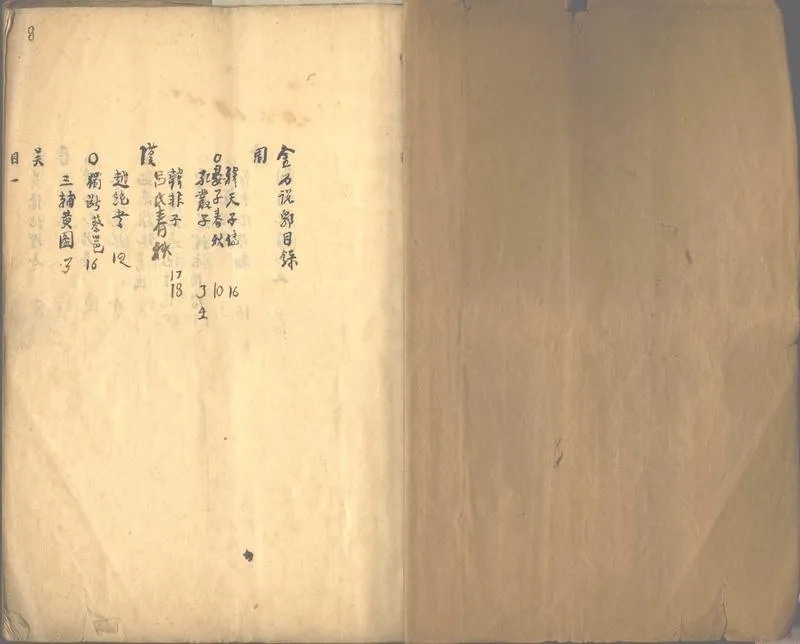 8
金石說郛目錄
周
穆天子傳 16
○晏子春秋 10
孔叢子
韓非子 17 18
呂氏春秋
漢
越絕書 12
○獨斷蔡邕 16
三輔黃图
吴
目一